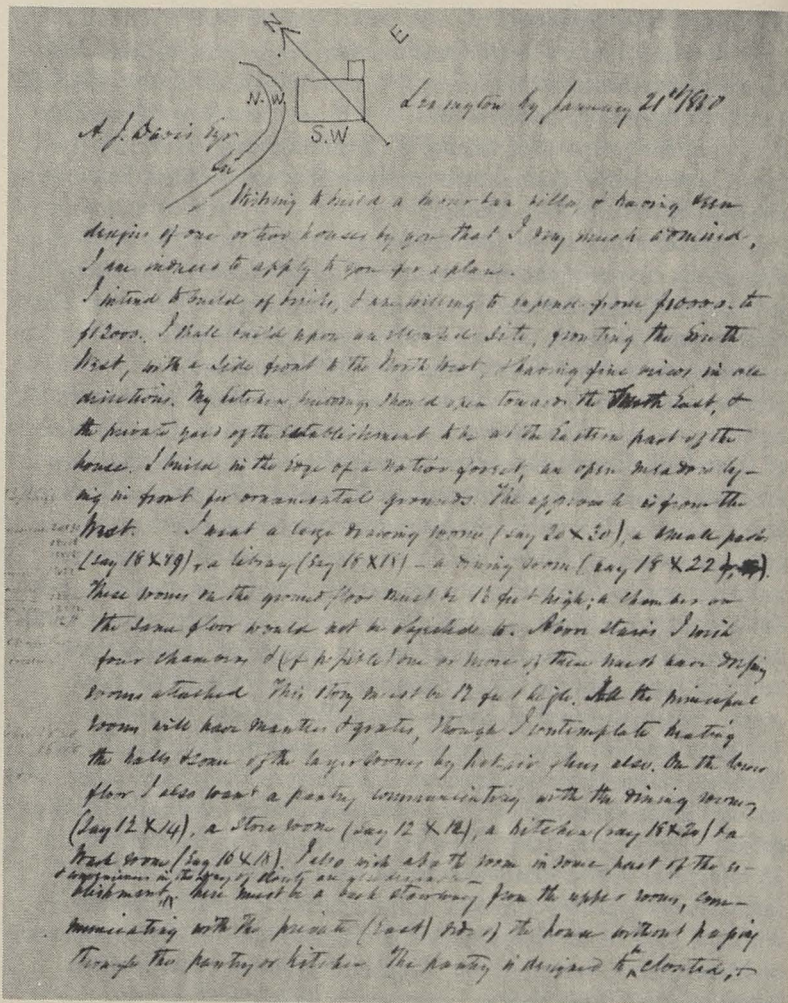 N
E
N.W.
S.W
Lexington Ky January 21st 1850
A. J. Davis Esqr
Wishing to build a suburban villa, & having seen
designs of one or two houses by you that I very much admired,
I am induced to apply to you for a plan.
I intend to build of brick, & am willing to expend from $10000. to
$12000. I shall build upon an elevated site, fronting the South
West, with a side front to the North West, & having fine views in all
directions. My kitchen buildings should open towards the South East, &
the private yard of the establishment to be at the Eastern part of the
house. I build in the edge of a native forest, an open meadow ly-
ing in front for ornamental grounds. The approach is from the
West. I want a large drawing room (say 20 X 30), a small parlor
(say 18 X ), a library (say 18 X 18) – a dining room (say 18 X 22 ).
These rooms on the ground floor must be feet high; a chamber on
the same floor would not be objected to. Above stairs I wish
four chambers & (if possible) one or more of these must have dressing
rooms attached. This story must be 12 feet high. All the principal
rooms will have mantles & grates, though I contemplate heating
the halls & some of the larger rooms by hot air flues also. On the lower
floor I also want a pantry communicating with the dining room,
(say 12 X 14), a store room (say 12 X 12), a kitchen (say 18 X 20) & a
wash room (say 16 X 18). I also wish a bath room in some part of the es-
& conveniences in the way of closets are also
blishment, here must be a back stairway from the upper rooms, com-
municating with the private (East) side of the house without passing
through the pantry or kitchen. The pantry is designed to be closeted, &